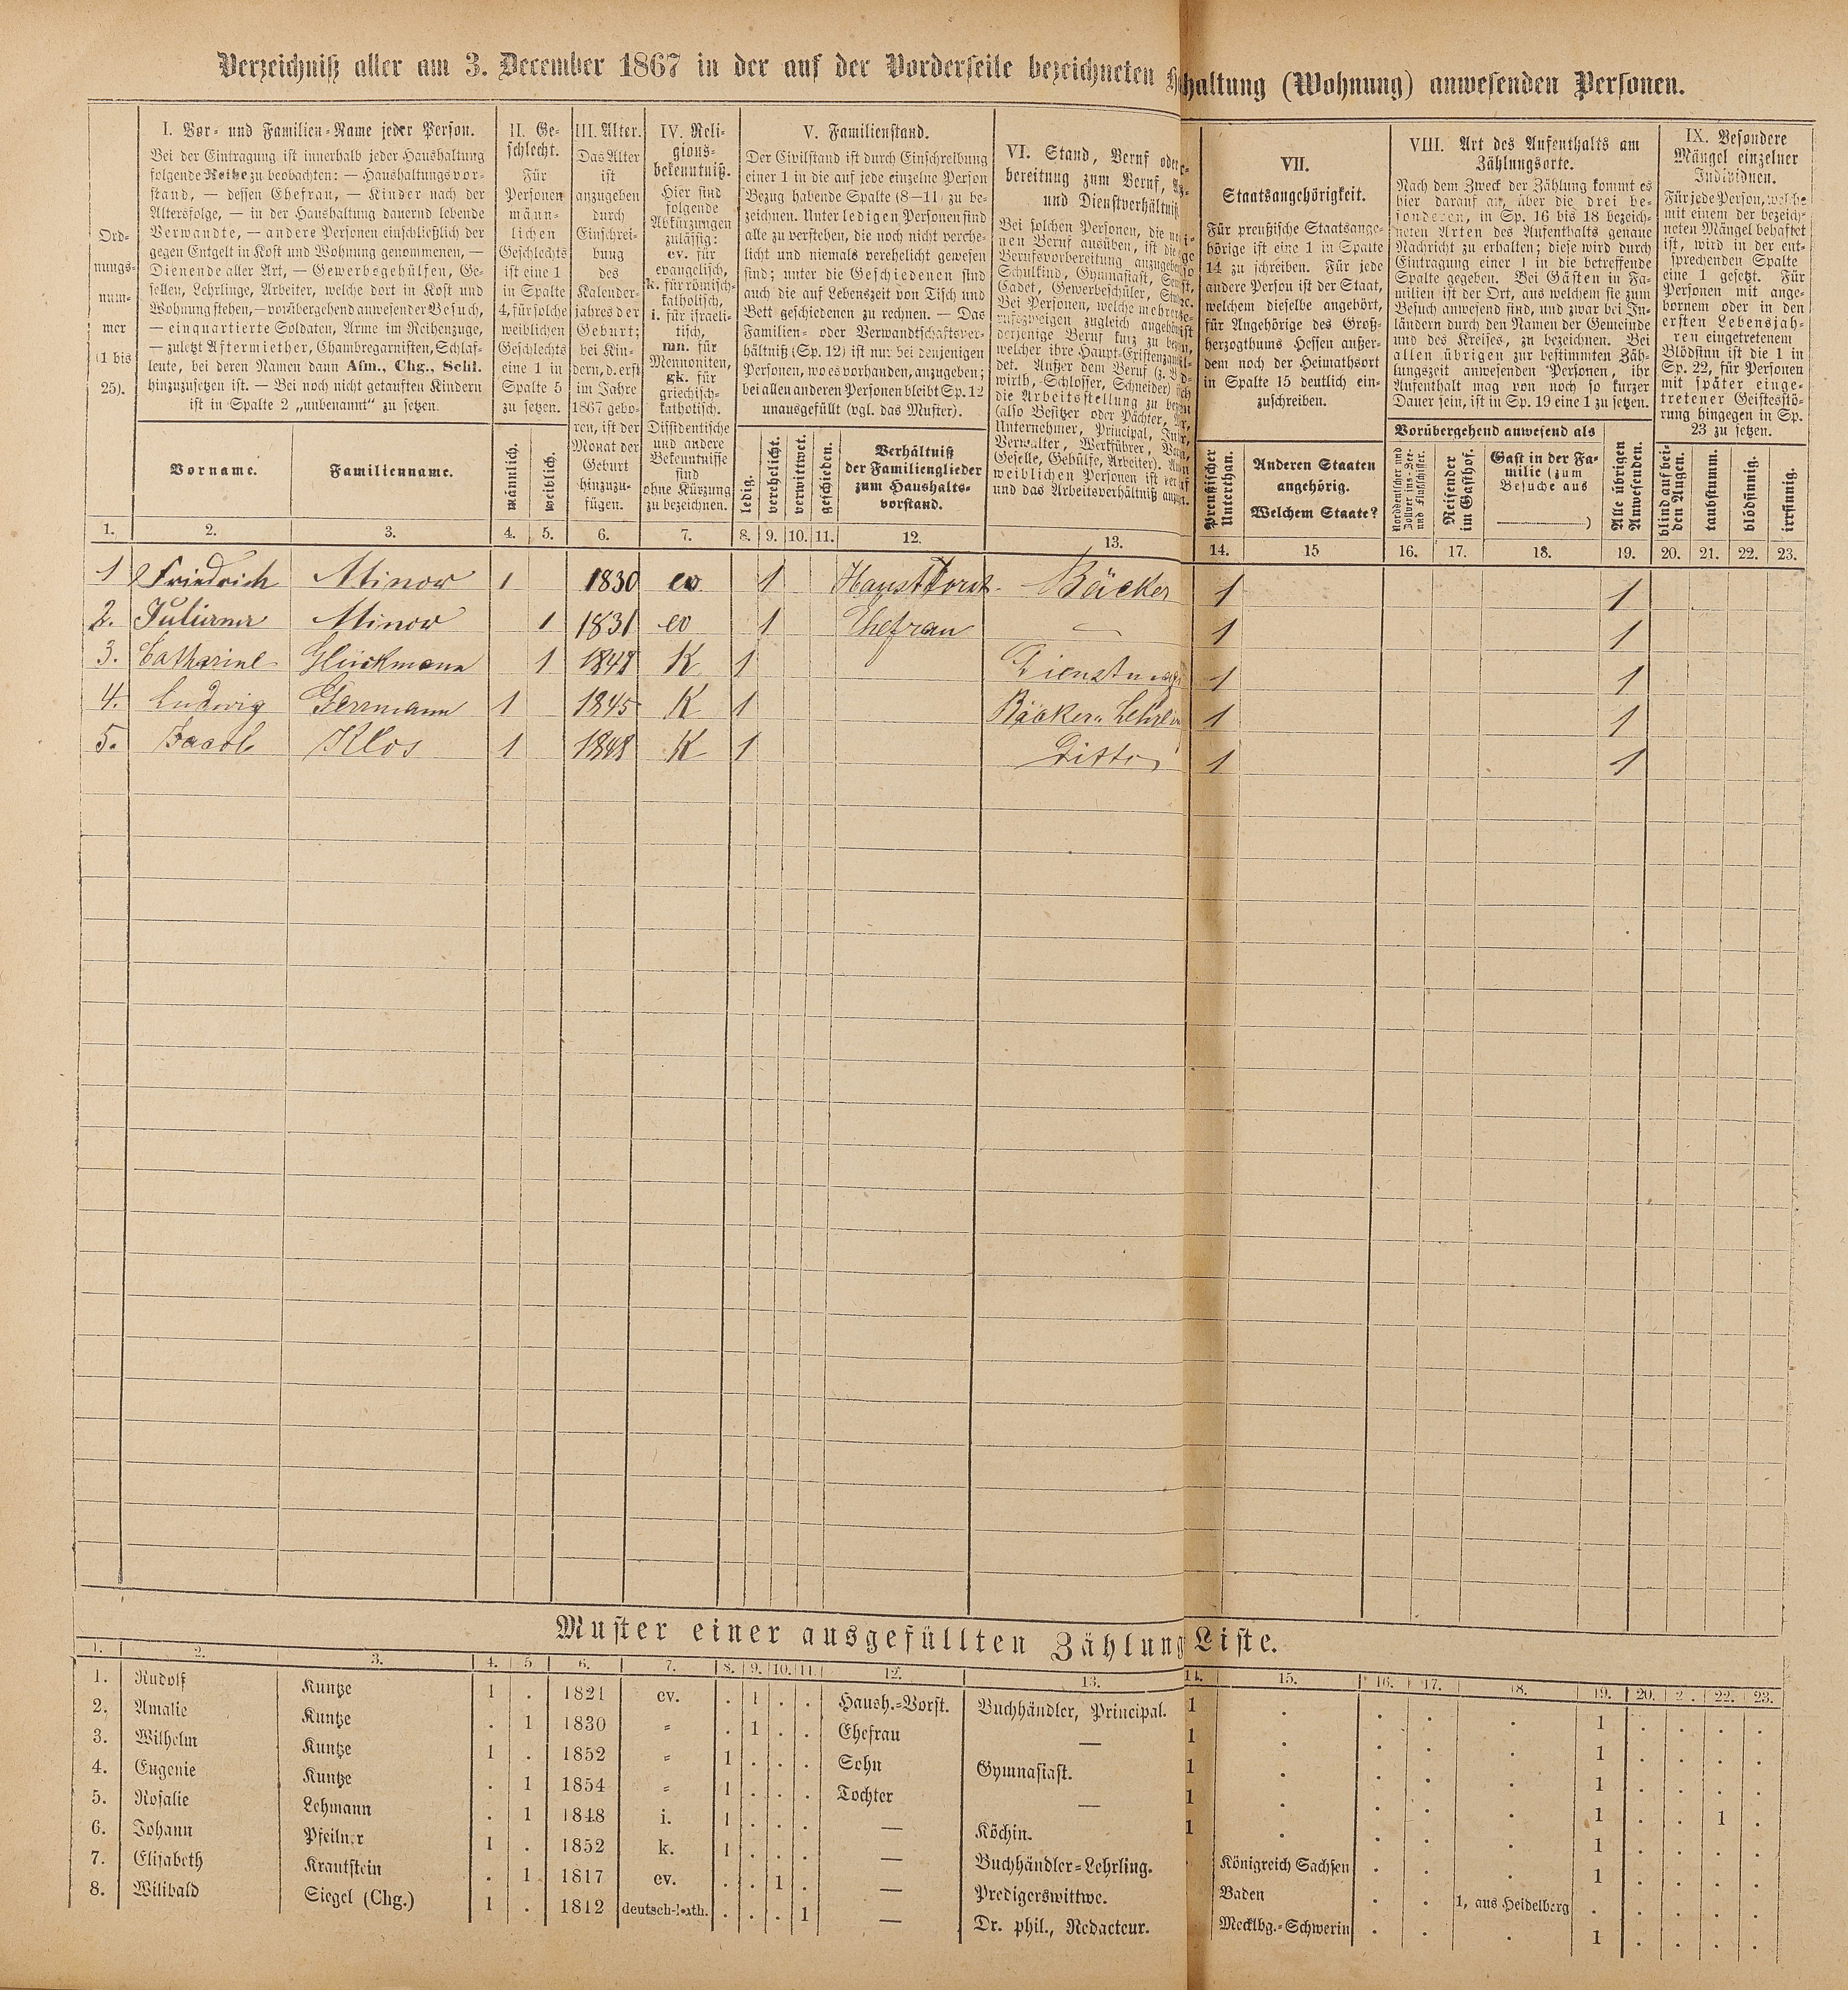 Verzeichniß aller am 3. December 1867 in der auf der Vorderseite bezeichneten haltung (Wohnung) anwesenden Personen.
Ord-
nungs-
num-
mer
(1 bis
25).
I. Vor- und Familien-Name jeder Person.
Bei der Eintragung ist innerhalb jeder Haushaltung
folgende Reihe zu beobachten: — Haushaltungsvor-
stand, — dessen Ehefrau, — Kinder nach der
Altersfolge, — in der Haushaltung dauernd lebende
Verwandte, — andere Personen einschließlich der
gegen Entgelt in Kost und Wohnung genommenen, —
Dienende aller Art, — Gewerbsgehülfen, Ge-
sellen, Lehrlinge, Arbeiter, welche dort in Kost und
Wohnung stehen, — vorübergehend anwesender Besuch,
— einquartierte Soldaten, Arme im Reihenzuge,
— zuletzt Aftermiether, Chambregarnisten, Schlaf-
leute, bei deren Namen dann Afm., Chg., Schl.
hinzuzusetzen ist. — Bei noch nicht getauften Kindern
ist in Spalte 2 „unbenannt" zu setzen.
Vorname.
Familienname.
II. Ge-
schlecht.
Für
Personen
männ-
lichen
Geschlechts
ist eine 1
in Spalte
4, für solche
weiblichen
Geschlechts
eine 1 in
Spalte 5
zu setzen.
männlich.
weiblich.
III. Alter.
Das Alter
ist
anzugeben
durch
Einschrei-
bung
des
Kalender-
jahres der
Geburt;
bei Kin-
dern, d. erst
im Jahre
1867 gebo-
ren, ist der
Monat der
Geburt
hinzuzu-
fügen.
IV. Reli-
gions-
bekenntniß.
Hier sind
folgende
Abkürzungen
zulässig:
ev. für
evangelisch,
k. für römisch-
katholisch,
i. für israeli-
tisch,
mn. für
Mennoniten,
gk. für
griechisch-
katholisch.
Dissidentische
und andere
Bekenntnisse
sind
ohne Kürzung
zu bezeichnen.
V. Familienstand.
Der Civilstand ist durch Einschreibung
einer 1 in die auf jede einzelne Person
Bezug habende Spalte (8—11) zu be-
zeichnen. Unter ledigen Personen sind
alle zu verstehen, die noch nicht verehe-
licht und niemals verehelicht gewesen
sind; unter die Geschiedenen sind
auch die auf Lebenszeit von Tisch und
Bett geschiedenen zu rechnen. — Das
Familien- oder Verwandtschaftsver-
hältniß (Sp. 12) ist nur bei denjenigen
Personen, wo es vorhanden, anzugeben;
bei allen anderen Personen bleibt Sp. 12
unausgefüllt (vgl. das Muster).
ledig.
verehelicht.
verwittwet.
geschieden.
Verhältniß
der Familienglieder
zum Haushalts-
vorstand.
VI. Stand, Beruf oder
bereitung zum Beruf,
und Dienstverhältniß
Bei solchen Personen, die
nen Beruf ausüben, ist die
Berufsvorbereitung
Schulkind, Gymnasiast,
Cadet, Gewerbeschüler,
Bei Personen, welche
zugleich
derjenige Beruf kurz zu
welcher ihre Haupt-
det. Außer dem Beruf (z. B.
wirth, Schlosser, Schneider)
die Arbeitsstellung zu
(also Besitzer oder Pächter,
Unternehmer, Principal,
Verwalter, Werkführer,
Geselle, Gehülfe, Arbeiter).
weiblichen Personen ist
und das Arbeitsverhältniß
VII.
Staatsangehörigkeit.
Für preußische Staatsange-
hörige ist eine 1 in Spalte
14 zu schreiben. Für jede
andere Person ist der Staat,
welchem dieselbe angehört,
für Angehörige des Groß-
herzogthums Hessen außer-
dem noch der Heimathsort
in Spalte 15 deutlich ein-
zuschreiben.
Preußischer
Unterthan.
Anderen Staaten
angehörig.
Welchem Staate?
VIII. Art des Aufenthalts am
Zählungsorte.
Nach dem Zweck der Zählung kommt es
hier darauf an, über die drei be-
sonderen, in Sp. 16 bis 18 bezeich-
neten Arten des Aufenthalts genaue
Nachricht zu erhalten; diese wird durch
Eintragung einer 1 in die betreffende
Spalte gegeben. Bei Gästen in Fa-
milien ist der Ort, aus welchem sie zum
Besuch anwesend sind, und zwar bei In-
ländern durch den Namen der Gemeinde
und des Kreises, zu bezeichnen. Bei
allen übrigen zur bestimmten Zäh-
lungszeit anwesenden Personen, ihr
Aufenthalt mag von noch so kurzer
Dauer sein, ist in Sp. 19 eine 1 zu setzen.
Vorübergehend anwesend als
Norddeutscher und
Zollvereins-See-
und Flußschiffer.
Reisender
im Gasthof.
Gast in der Fa-
milie (zum
Besuche aus
)
Alle übrigen
Anwesenden.
IX. Besondere
Mängel einzelner
Individuen.
Für jede Person, welche
mit einem der bezeich-
neten Mängel behaftet
ist, wird in der ent-
sprechenden Spalte
eine 1 gesetzt. Für
Personen mit ange-
bornem oder in den
ersten Lebensjah-
ren eingetretenem
Blödsinn ist die 1 in
Sp. 22, für Personen
mit später einge-
tretener Geistesstö-
rung hingegen in Sp.
23 zu setzen.
blind auf bei-
den Augen.
taubstumm.
blödsinnig.
irrsinnig.
1. 2. 3. 4. 5. 6. 7. 8. 9. 10. 11. 12. 13. 14. 15 16. 17. 18. 19. 20. 21. 22. 23.
1 Friedrich Minor 1 1830 ev 1 Bäcker 1 1
2. Minor 1 1831 ev 1 Ehefrau — 1 1
3. Catharine Glückmann 1 1848 K 1 1 1
4. Ludwig Germann 1 1845 K 1 Bäcker 1 1
5. Jacob Klos 1 1848 K 1 Ditto 1 1
Muster einer ausgefüllten Zählung Liste.
1. 2. 3. 4. 5. 6. 7. 8. 9. 10. 11. 12. 13. 14. 15. 16. 17. 18. 19. 20. 2. 22. 23.
1. Rudolf Kuntze 1 . 1821 ev. . 1 . . Haush.-Vorst. Buchhändler, Principal. 1 . . . . 1 . . . .
2. Amalie Kuntze . 1 1830 = . 1 . . Ehefrau — 1 . . . . 1 . . . .
3. Wilhelm Kuntze 1 . 1852 = 1 . . . Sohn Gymnasiast. 1 . . . . 1 . . . .
4. Eugenie Kuntze . 1 1854 = 1 . . . Tochter — 1 . . . . 1 . . 1 .
5. Rosalie Lehmann . 1 1848 i. 1 . . . — Köchin. 1 . . . . 1 . . . .
6. Johann Pfeilner 1 . 1852 k. 1 . . . — Buchhändler-Lehrling. . Königreich Sachsen . . . 1 . . . .
7. Elisabeth Krautstein . 1 1817 ev. . . 1 . — Predigerswittwe. Baden . . 1, aus Heidelberg . . . . .
8. Wilibald Siegel (Chg.) 1 . 1812 deutsch-kath. . . . 1 — Dr. phil., Redacteur. Mecklbg.-Schwerin . . . 1 . . . .